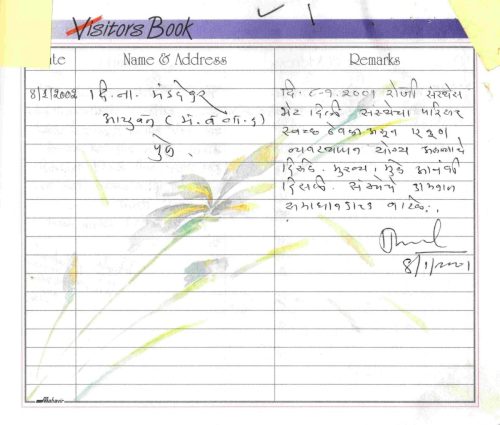 Visitors Book
Date
Name & Address
Remarks
8/1/2002
दि. ना. मंडलेकर
आयुक्त (म. व बा.
पुणे.
दि. ८-१-२००१ रोजी संस्थेस
भेट दिली संस्थेचा परिसर
स्वच्छ ठेवला असून एकूण
व्यवस्थापन योग्य असल्याचे
दिसले. मुख्य, मुले आनंदी
दिसली. संस्थेचे कामकाज
समाधानकारक वाटले.
8/1/2001